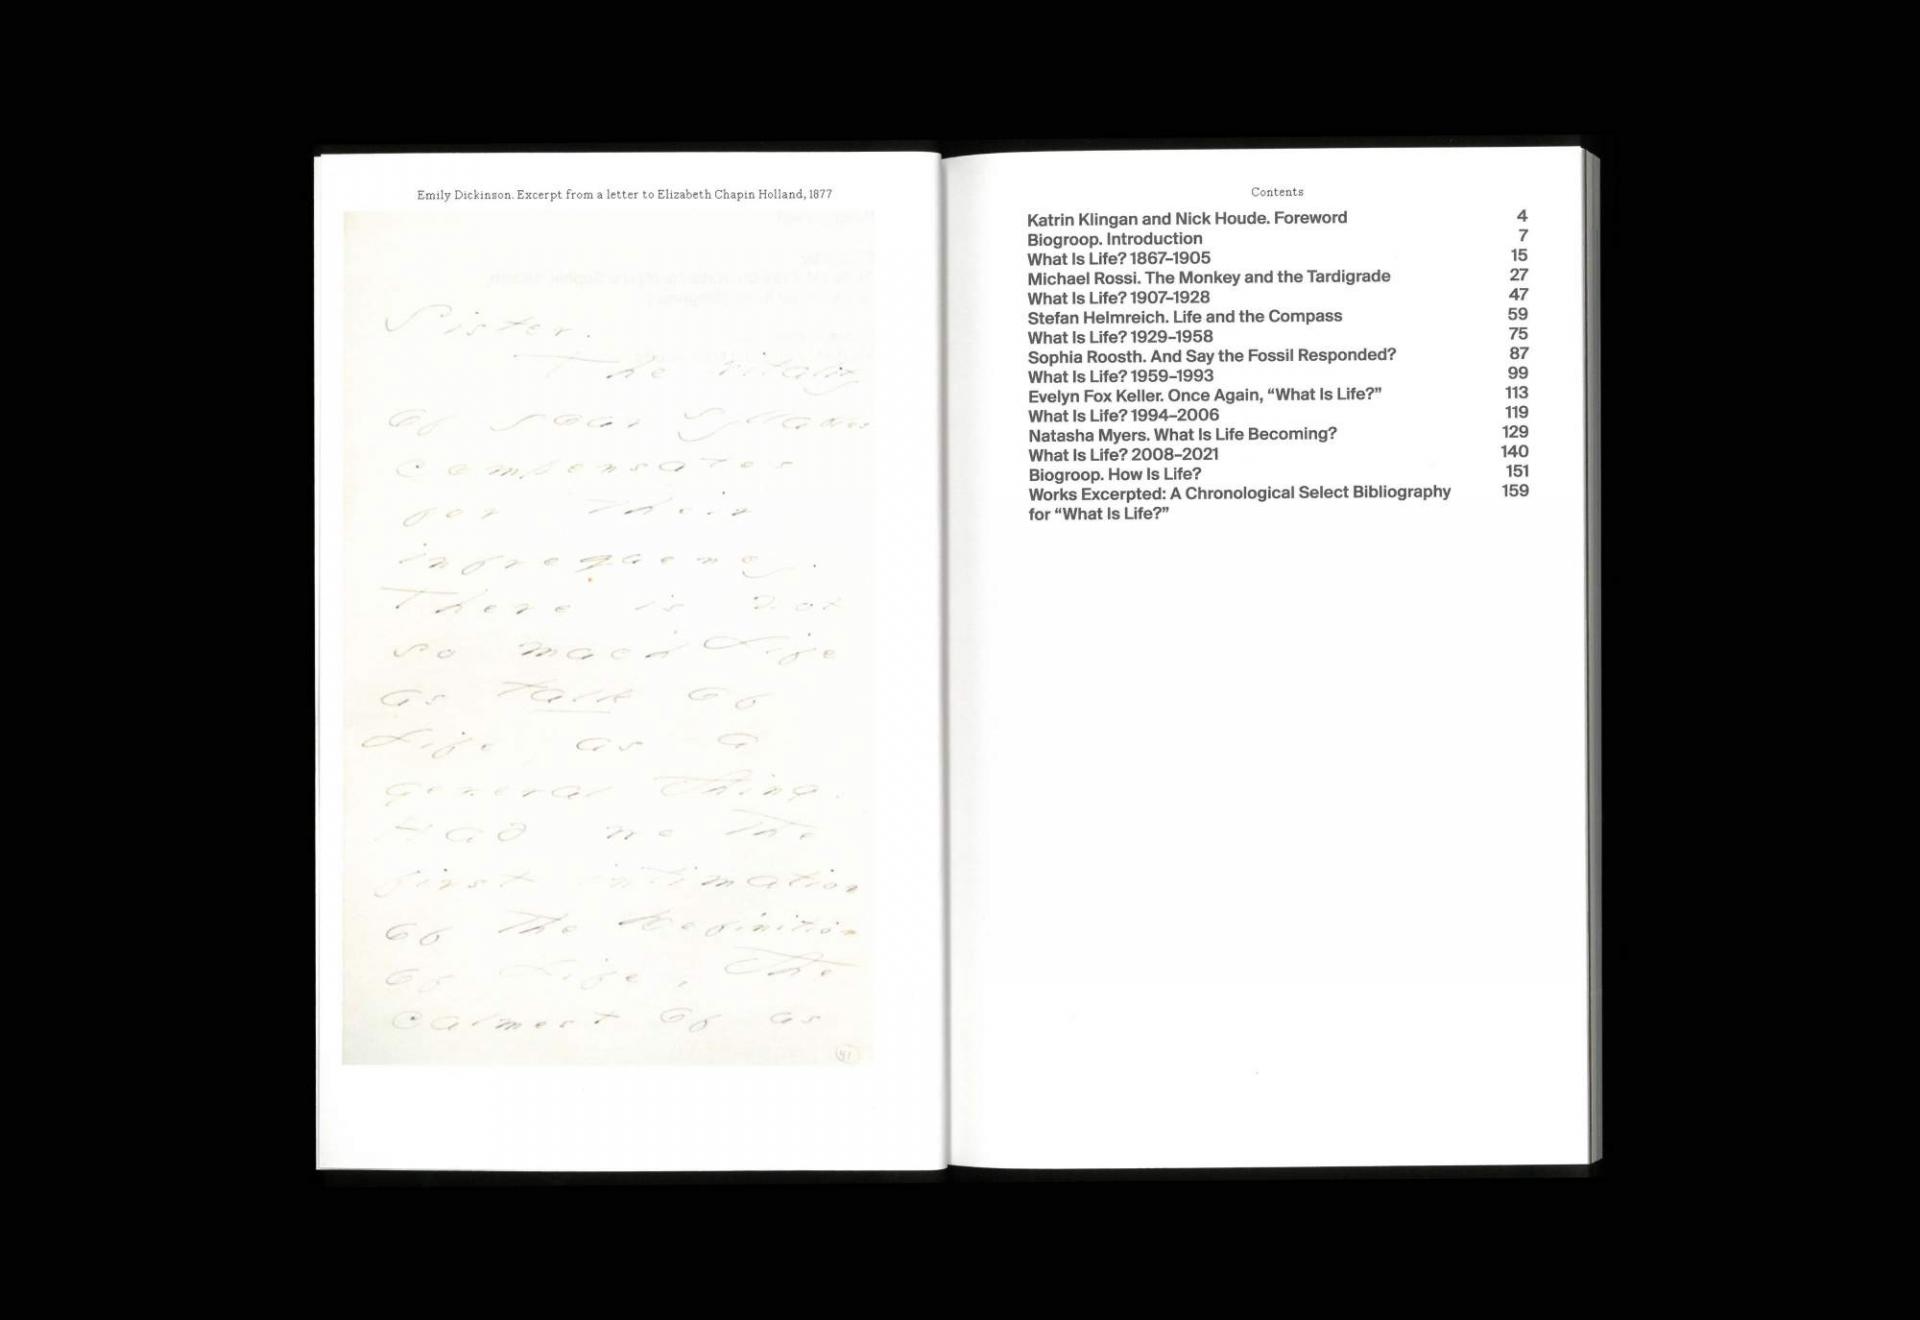 Emily Dickinson. Excerpt from a letter to Elizabeth Chapin Holland, 1877
Sister.
The vitality
of your syllables
compensates
for their
infrequency.
There is not
so much Life
as talk of
Life as a
general thing.
Had we the
first intimation
of the Definition
of Life, the
calmest of us
Contents
Katrin Klingan and Nick Houde. Foreword 4
Biogroop. Introduction 7
What Is Life? 1867–1905 15
Michael Rossi. The Monkey and the Tardigrade 27
What Is Life? 1907–1928 47
Stefan Helmreich. Life and the Compass 59
What Is Life? 1929–1958 75
Sophia Roosth. And Say the Fossil Responded? 87
What Is Life? 1959–1993 99
Evelyn Fox Keller. Once Again, “What Is Life?” 113
What Is Life? 1994–2006 119
Natasha Myers. What Is Life Becoming? 129
What Is Life? 2008–2021 140
Biogroop. How Is Life? 151
Works Excerpted: A Chronological Select Bibliography 159
for “What Is Life?”